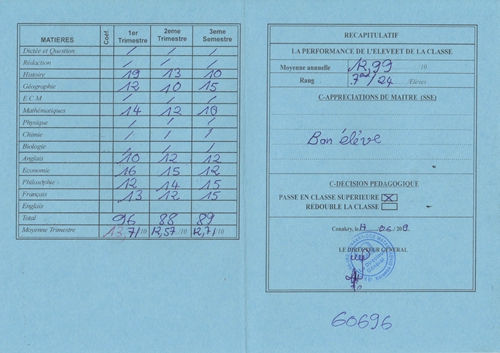 MATIERES Coef. 1er Trimestre 2eme Trimestre 3eme Semestre
Dictée et Question / / /
Rédaction / / /
Histoire 19 13 10
Géographie 12 10 15
E C M / / /
Mathématiques 14 12 10
Physique / / /
Chimie / / /
Biologie / / /
Anglais 10 12 12
Economie 16 15 12
Philosophie 12 14 15
Français 13 12 15
Englais
Total 96 88 89
Moyenne Trimestre 13,71/10 12,57/10 12,71/10
RECAPITULATIF
LA PERFORMANCE DE L'ELEVEET DE LA CLASSE
Moyenne annuelle 12,99 /10
Rang /24 Elèves
C-APPRECIATIONS DU MAITRE (SSE)
Bon élève
C-DECISION PEDAGOGIQUE
PASSE EN CLASSE SUPERIEURE
REDOUBLE LA CLASSE
Conakry, le
LE DIRECTEUR GENERAL
60696